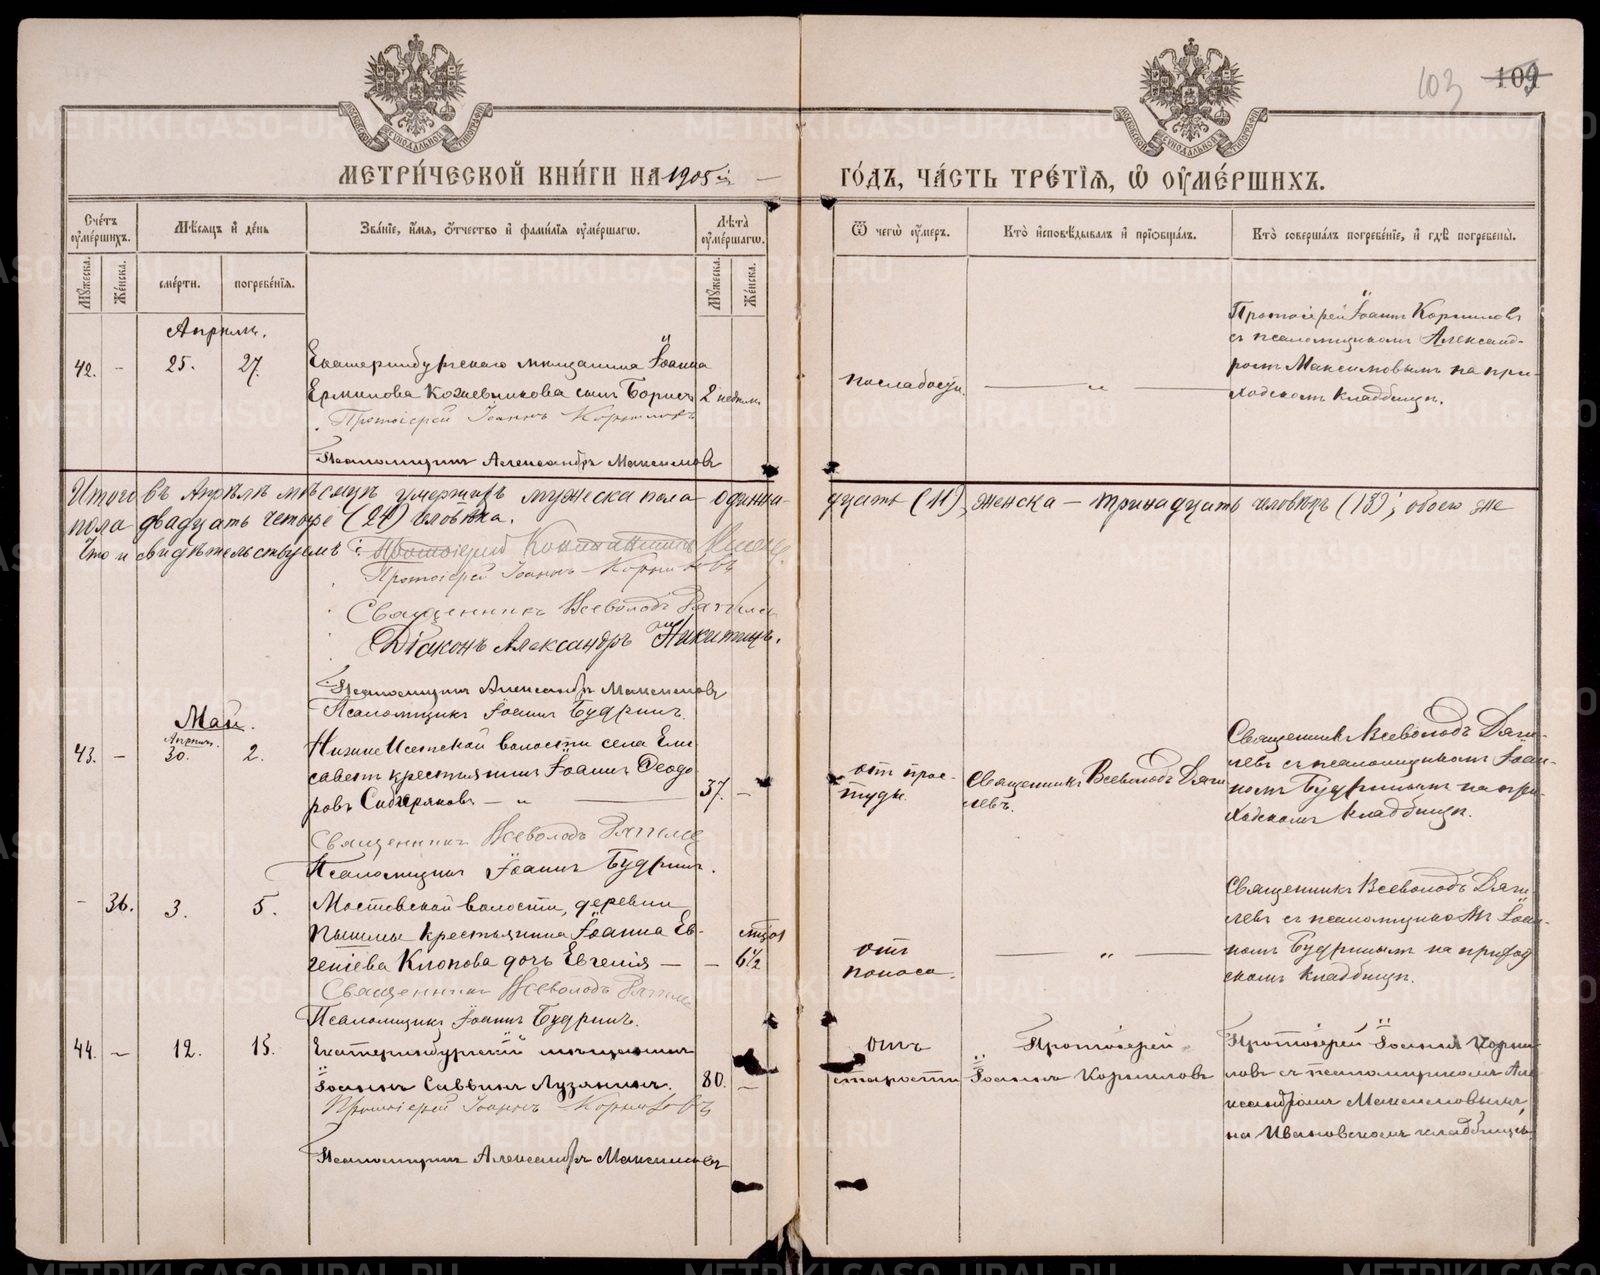 103 109
МЕТРИ́ЧЕСКОЙ КНИ́ГИ НА 1905й ГО́ДЪ, ЧА́СТЬ ТРЕ́ТІѦ, Ѡ ОУМЕ́РШИХЪ.
Сче́тъ оуме́ршихъ.
Мѣ́сяцъ и де́нь
Зва́нїе, и́мѧ, ѻ́тчество и фами́лїѧ оуме́ршагѡ.
Лѣ́та оуме́ршагѡ.
Ѿ чегѡ̀ оу́меръ.
Кто̀ исповѣ́дывалъ и прїѡбща́лъ.
Кто̀ соверша́лъ погребе́нїе, и гдѣ̀ погребены̀.
Мꙋ́жеска. Же́нска. сме́рти. погребе́нїѧ. Мꙋ́жеска. Же́нска.
Апрель.
42. - 25. 27.
Екатеринбургскаго мѣщанина Іоанна
Ермилова Кожевникова сынъ Борисъ 2 недѣли
Протоіерей Іоаннъ Корниловъ
Псаломщикъ Александръ Максимовъ
послабосуи. — „ —
Протоіерей Іоаннъ Корниловъ
съ псаломщикомъ Александ-
ромъ Максимовымъ на при-
ходскомъ кладбищѣ.
Итого въ Апрѣлѣ мѣсяцѣ умершихъ мужеска пола одинна-
дцать (11), женска — тринадцать человѣкъ (13); обоего же
пола двадцать четыре (24) человѣка.
Что и свидѣтельствуемъ: Протоіерей Константинъ
Протоіерей Іоаннъ Корниловъ
Священникъ Всеволодъ Дягилевъ
Діаконъ Александръ Никитинъ.
Псаломщикъ Александръ Максимовъ
Псаломщикъ Іоаннъ Будринъ.
Май.
Апрѣль.
43. - 30. 2.
Нижне Исетской волости села Ели
саветъ крестьянинъ Іоаннъ Ѳеодо
ровъ Сибиряковъ — „ — 37. -
Священникъ Всеволодъ Дягилевъ
Псаломщикъ Іоаннъ Будринъ.
отъ прос-
туды.
Священникъ Всеволодъ Дяги
левъ.
Священникъ Всеволодъ Дяги-
левъ съ псаломщикомъ Іоан-
номъ Будринымъ на при-
ходскомъ кладбищѣ.
- 36. 3. 5.
Мостовской волости, деревни
Пышмы крестьянина Іоанна Ев-
геніева Клопова дочь Евгенія — - 6½
Священникъ Всеволодъ Дягилевъ
Псаломщикъ Іоаннъ Будринъ.
отъ
поноса.
— „ —
Священникъ Всеволодъ Дяги
левъ съ псаломщикомъ Іоан-
номъ Будринымъ на приход
скомъ кладбищѣ.
44. - 12. 15.
Екатеринбургскій мѣщанинъ
Іоаннъ Саввинъ Лузянинъ. 80. -
Протоіерей Іоаннъ Корниловъ
Псаломщикъ Александръ Максимовъ
отъ
старости
Протоіерей
Іоаннъ Корниловъ
Протоіерей Іоаннъ Корни
ловъ съ псаломщикомъ Але
ксандромъ Максимовымъ
на Ивановскомъ кладбищѣ
METRIKI.GASO-URAL.RU